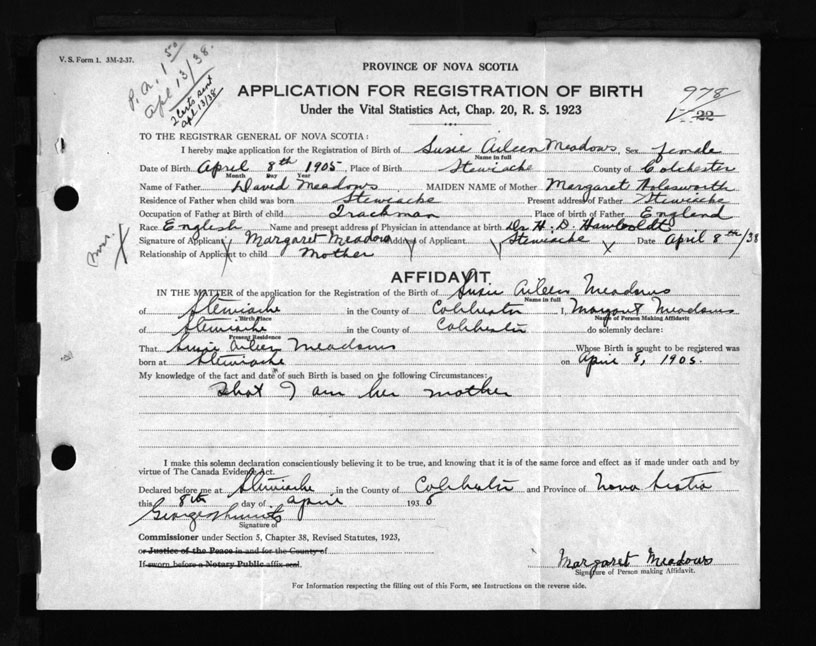 V. S. Form 1. 3M-2-37.
P. a. 1 50
apl 13/38.
2 Certs sent
apl 13/38
PROVINCE OF NOVA SCOTIA
APPLICATION FOR REGISTRATION OF BIRTH
Under the Vital Statistics Act, Chap. 20, R. S. 1923
978
22
TO THE REGISTRAR GENERAL OF NOVA SCOTIA:
I hereby make application for the Registration of Birth of Susie Aileen Meadows, Sex female
Name in full
Date of Birth April 8th 1905. Place of Birth Stewiacke County of Colchester
Month Day Year
Name of Father David Meadows MAIDEN NAME of Mother Margaret Holesworth
Residence of Father when child was born Stewiacke Present address of Father Stewiacke
Occupation of Father at Birth of child Trackman Place of birth of Father England
Race English Name and present address of Physician in attendance at birth Dr. H. D. Hawboldt
Signature of Applicant Margaret Meadows Address of Applicant Stewiacke Date April 8th/38
Relationship of Applicant to child Mother
AFFIDAVIT
IN THE MATTER of the application for the Registration of the Birth of Susie Aileen Meadows
Name in full
of Stewiacke in the County of Colchester I, Margaret Meadows
Birth Place Name of Person Making Affidavit
of Stewiacke in the County of Colchester do solemnly declare:
Present Residence
That Susie Aileen Meadows Whose Birth is sought to be registered was
born at Stewiacke on April 8, 1905.
My knowledge of the fact and date of such Birth is based on the following Circumstances:
That I am her mother
I make this solemn declaration conscientiously believing it to be true, and knowing that it is of the same force and effect as if made under oath and by
virtue of The Canada Evidence Act.
Declared before me at Stewiacke in the County of Colchester and Province of Nova Scotia
this 8th day of april 1938
George
Signature of
Commissioner under Section 5, Chapter 38, Revised Statutes, 1923,
or Justice of the Peace in and for the County of
If sworn before a Notary Public affix seal.
Margaret Meadows
Signature of Person making Affidavit.
For Information respecting the filling out of this Form, see Instructions on the reverse side.